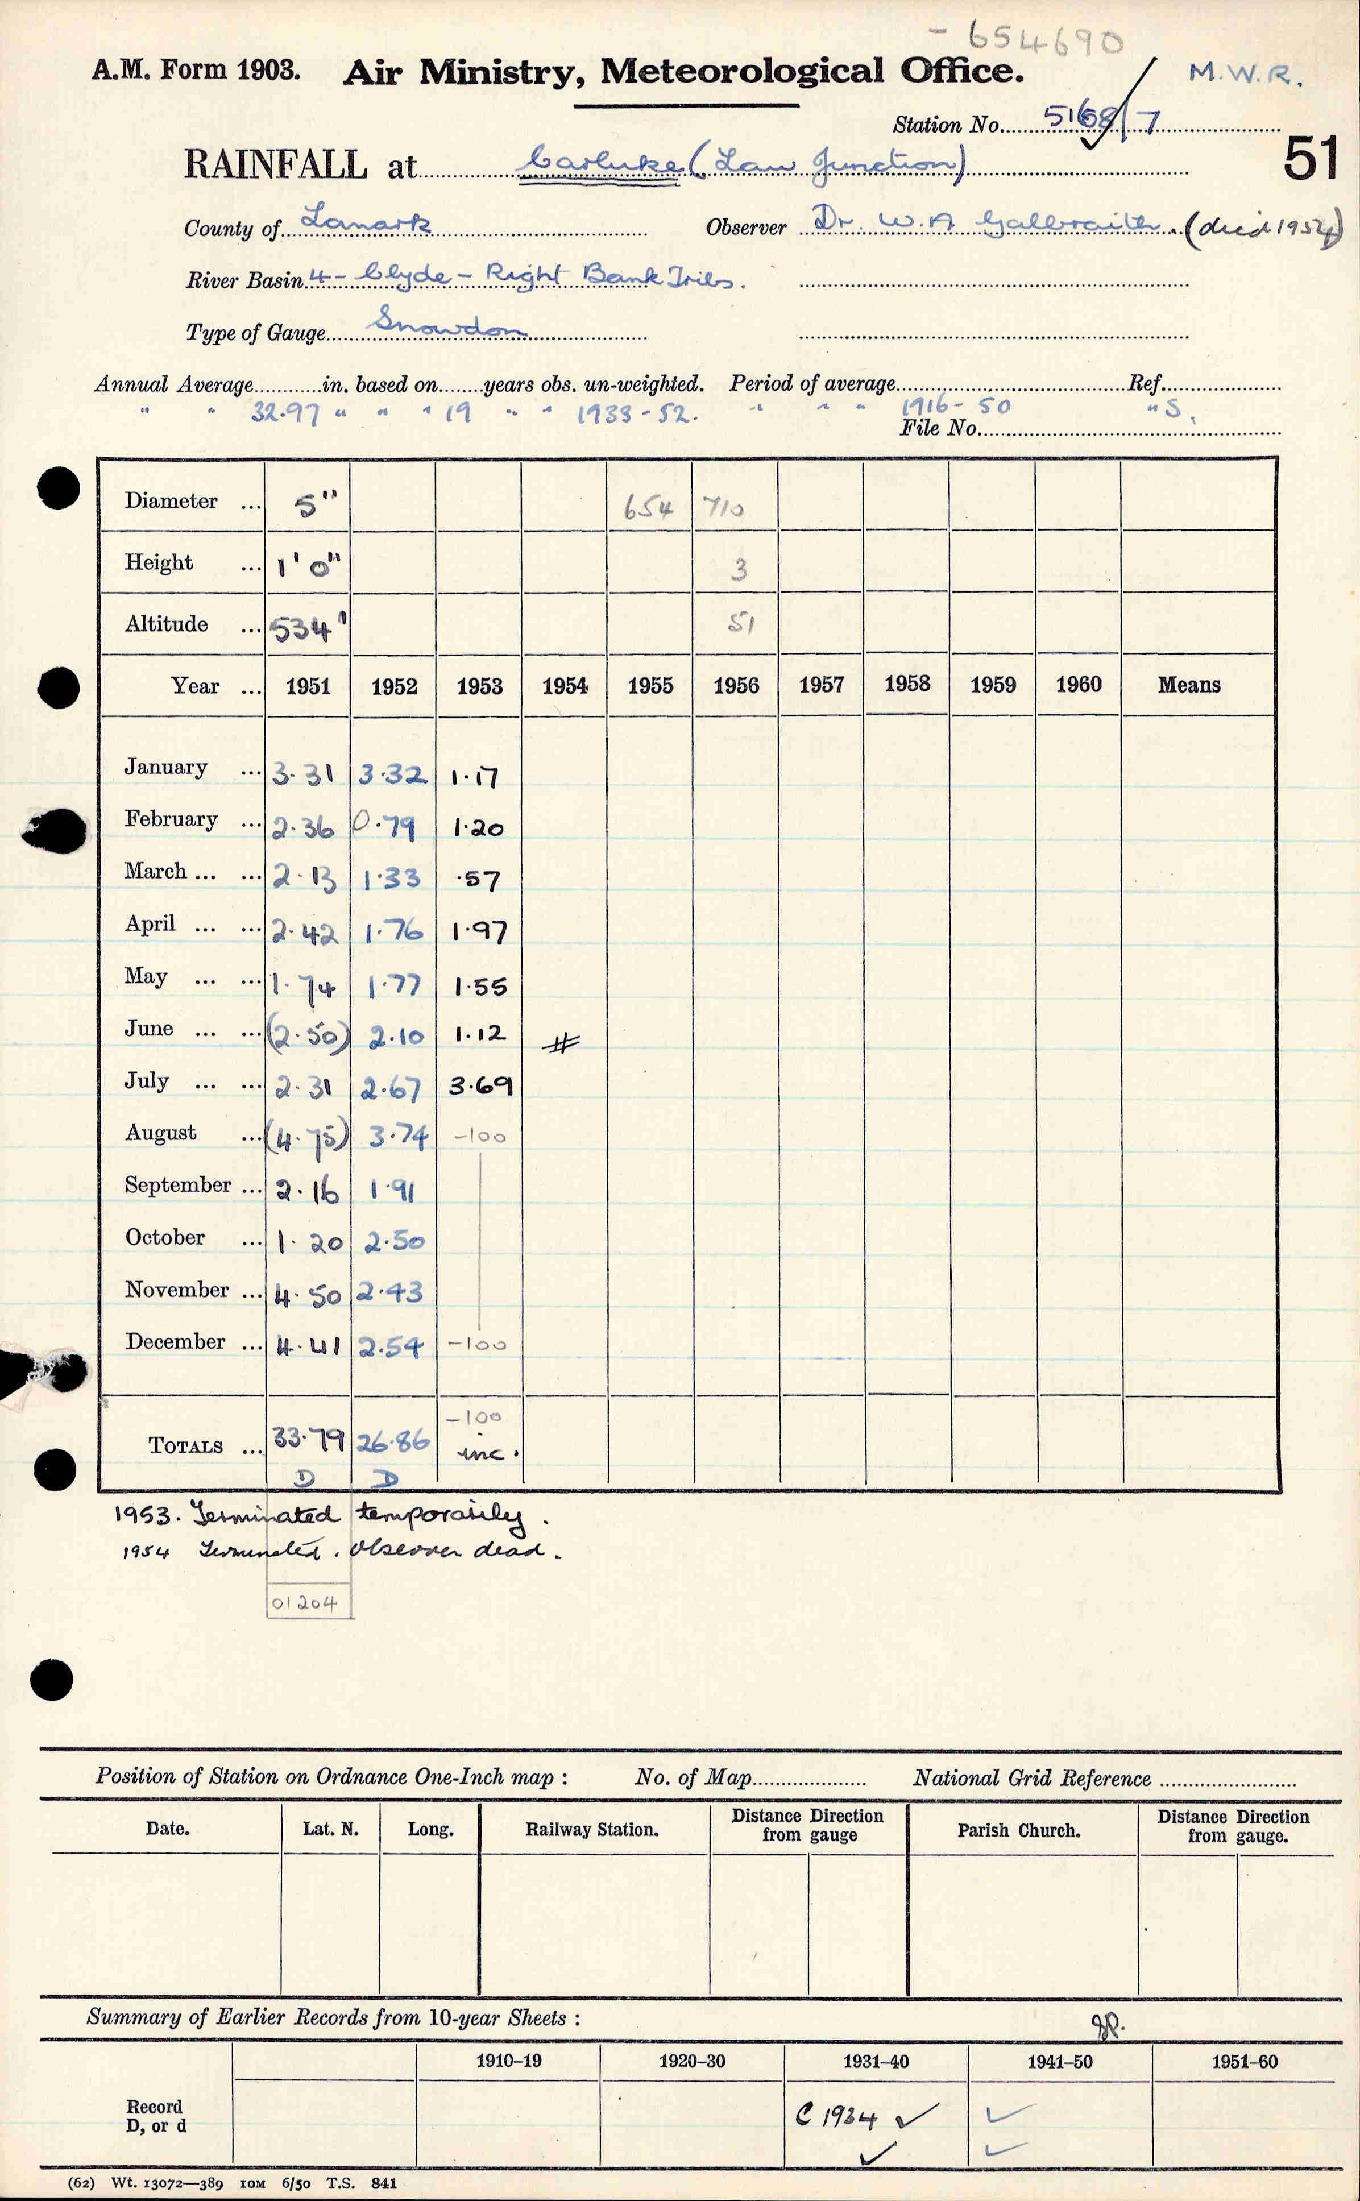 - 654690
A.M. Form 1903. Air Ministry, Meteorological Office. M.W.R.
Station No. 5168/7
RAINFALL at Carluke (Law Junction) 51
County of Lanark Observer Dr. W. A Galbraith. (died 1954)
River Basin 4 - Clyde - Right Bank Tribs.
Type of Gauge Snowdon
Annual Average in. based on years obs. un-weighted. Period of average Ref.
" " 32.97 " " " 19 " " 1933-52. " " " 1916-50 " S.
File No.
Diameter ... 5" 654 710
Height ... 1' 0" 3
Altitude ... 534' 51
Year ... 1951 1952 1953 1954 1955 1956 1957 1958 1959 1960 Means
January ... 3.31 3.32 1.17
February ... 2.36 0.79 1.20
March ... ... 2.13 1.33 .57
April ... ... 2.42 1.76 1.97
May ... ... 1.74 1.77 1.55
June ... ... (2.50) 2.10 1.12 #
July ... ... 2.31 2.67 3.69
August ... (4.75) 3.74 -100
September ... 2.16 1.91
October ... 1.20 2.50
November ... 4.50 2.43
December ... 4.41 2.54 -100
-100
TOTALS ... 33.79 26.86 inc.
D D
1953. Terminated temporarily.
1954 Terminated. Observer dead.
01204
Position of Station on Ordnance One-Inch map : No. of Map National Grid Reference
Date. Lat. N. Long. Railway Station. Distance Direction from gauge Parish Church. Distance Direction from gauge.
Summary of Earlier Records from 10-year Sheets :
1910-19 1920-30 1931-40 1941-50 1951-60
Record
D, or d
C 1934 ✓ ✓
✓ ✓
(62) Wt. 13072—389 10M 6/50 T.S. 841